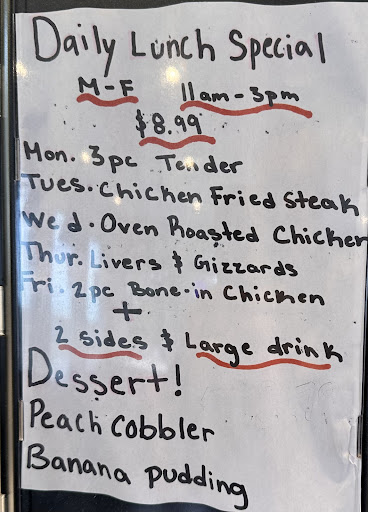 Daily Lunch Special
M-F 11am-3pm
$8.99
Mon. 3pc Tender
Tues. Chicken Fried Steak
Wed. Oven Roasted Chicken
Thur. Livers & Gizzards
Fri. 2pc Bone-in Chicken
+
2 sides & Large drink
Dessert!
Peach Cobbler
Banana pudding